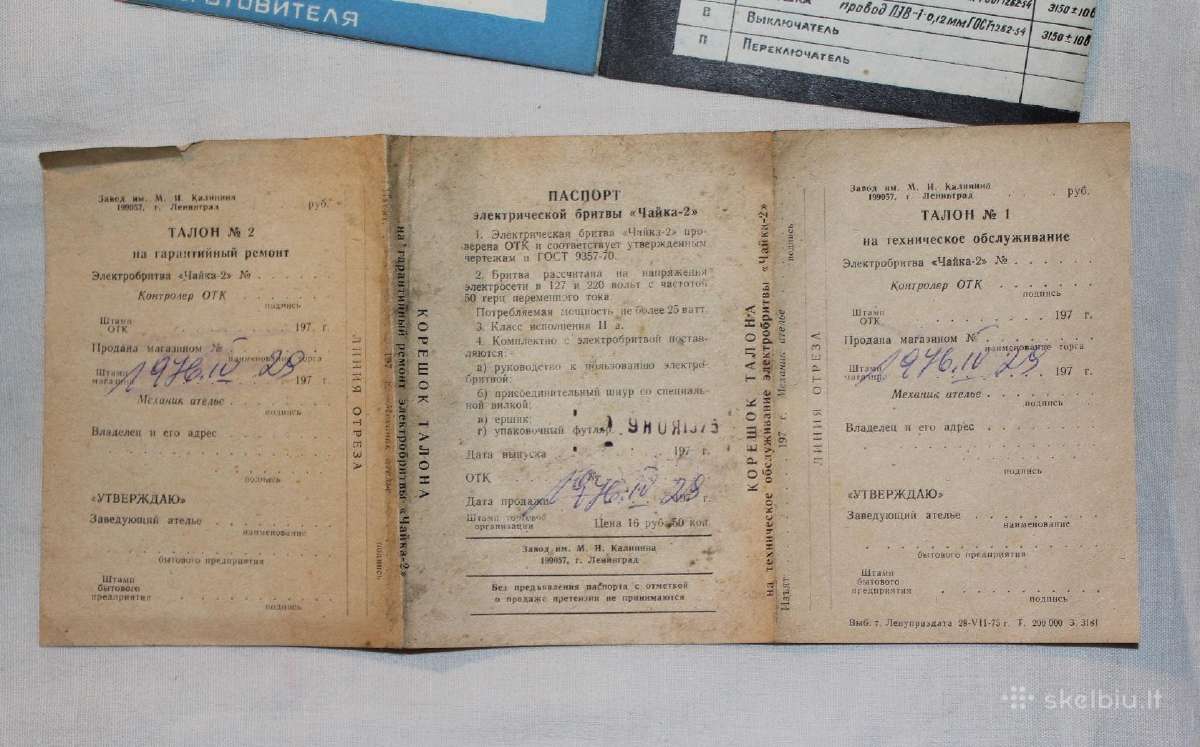 ОТОВИТЕЛЯ
провод ПЭВ-1-0,12мм ГОСТ7262-54
3150±10в
В
ВЫКЛЮЧАТЕЛЬ
3150±10в
П
ПЕРЕКЛЮЧАТЕЛЬ
Завод им. М. И. Калинина
199057, г. Ленинград
руб.
ТАЛОН № 2
на гарантийный ремонт
Электробритва «Чайка-2» №
Контролер ОТК
подпись
Штамп
ОТК
197 г.
Продана магазином №
наименование торга
Штамп
магазина
197 г.
1976.IV 28
Механик ателье
подпись
Владелец и его адрес
подпись
«УТВЕРЖДАЮ»
Заведующий ателье
наименование
бытового предприятия
Штамп
бытового
предприятия
подпись
ЛИНИЯ ОТРЕЗА
КОРЕШОК ТАЛОНА
на гарантийный ремонт электробритвы «Чайка-2»
197
Механик ателье
подпись
ПАСПОРТ
электрической бритвы «Чайка-2»
1. Электрическая бритва «Чайка-2» про-
верена ОТК и соответствует утвержденным
чертежам и ГОСТ 9357-70.
2. Бритва рассчитана на напряжения
электросети в 127 и 220 вольт с частотой
50 герц переменного тока.
Потребляемая мощность не более 25 ватт.
3. Класс исполнения II а.
4. Комплектно с электробритвой постав-
ляются:
а) руководство к пользованию электро-
бритвой:
б) присоединительный шнур со специаль-
ной вилкой;
в) ершик;
г) упаковочный футляр.
9 НОЯ 1975
Дата выпуска
197 г.
ОТК
Дата продажи
1976.IV 28
197 г.
Штамп торговой
организации
Цена 16 руб. 50 коп.
Завод им. М. И. Калинина
199057, г. Ленинград
Без предъявления паспорта с отметкой
о продаже претензии не принимаются
КОРЕШОК ТАЛОНА
на техническое обслуживание электробритвы «Чайка-2»
Изъят
197 г. Механик ателье
подпись
ЛИНИЯ ОТРЕЗА
Завод им. М. И. Калинина
199057, г. Ленинград
руб.
ТАЛОН № 1
на техническое обслуживание
Электробритва «Чайка-2» №
Контролер ОТК
подпись
Штамп
ОТК
197 г.
Продана магазином №
наименование торга
Штамп
магазина
197 г.
1976.IV 28
Механик ателье
подпись
Владелец и его адрес
подпись
«УТВЕРЖДАЮ»
Заведующий ателье
наименование
бытового предприятия
Штамп
бытового
предприятия
подпись
Выб. т. Ленуприздата 28-VII-75 г. Т. 200 000 З. 3181
skelbiu.lt